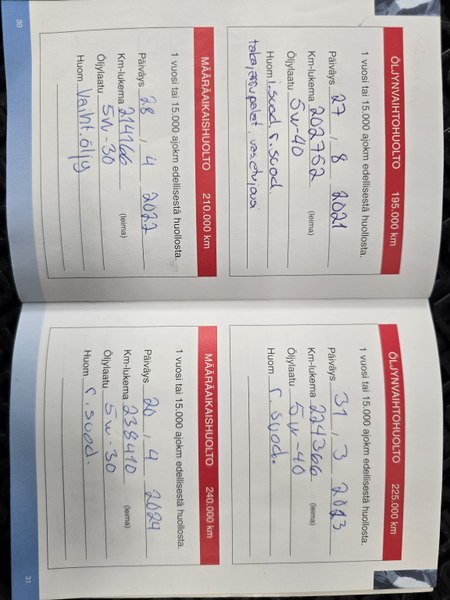 ÖLJYNVAIHTOHUOLTO 195.000 km
1 vuosi tai 15.000 ajokm edellisestä huollosta.
Päiväys 27 / 8 2021
Km-lukema 202752 (leima)
Öljylaatu 5w-40
Huom I.suod. r.suod.
takajarrupalat,
MÄÄRÄAIKAISHUOLTO 210.000 km
1 vuosi tai 15.000 ajokm edellisestä huollosta.
Päiväys 28 / 4 2022
Km-lukema 214166 (leima)
Öljylaatu 5w-30
Huom Vaiht.öljy
30
ÖLJYNVAIHTOHUOLTO 225.000 km
1 vuosi tai 15.000 ajokm edellisestä huollosta.
Päiväys 31 / 3 2023
Km-lukema 224366 (leima)
Öljylaatu 5w-40
Huom r.suod.
MÄÄRÄAIKAISHUOLTO 240.000 km
1 vuosi tai 15.000 ajokm edellisestä huollosta.
Päiväys 20 / 4 2024
Km-lukema 238410 (leima)
Öljylaatu 5w-30
Huom r.suod.
31